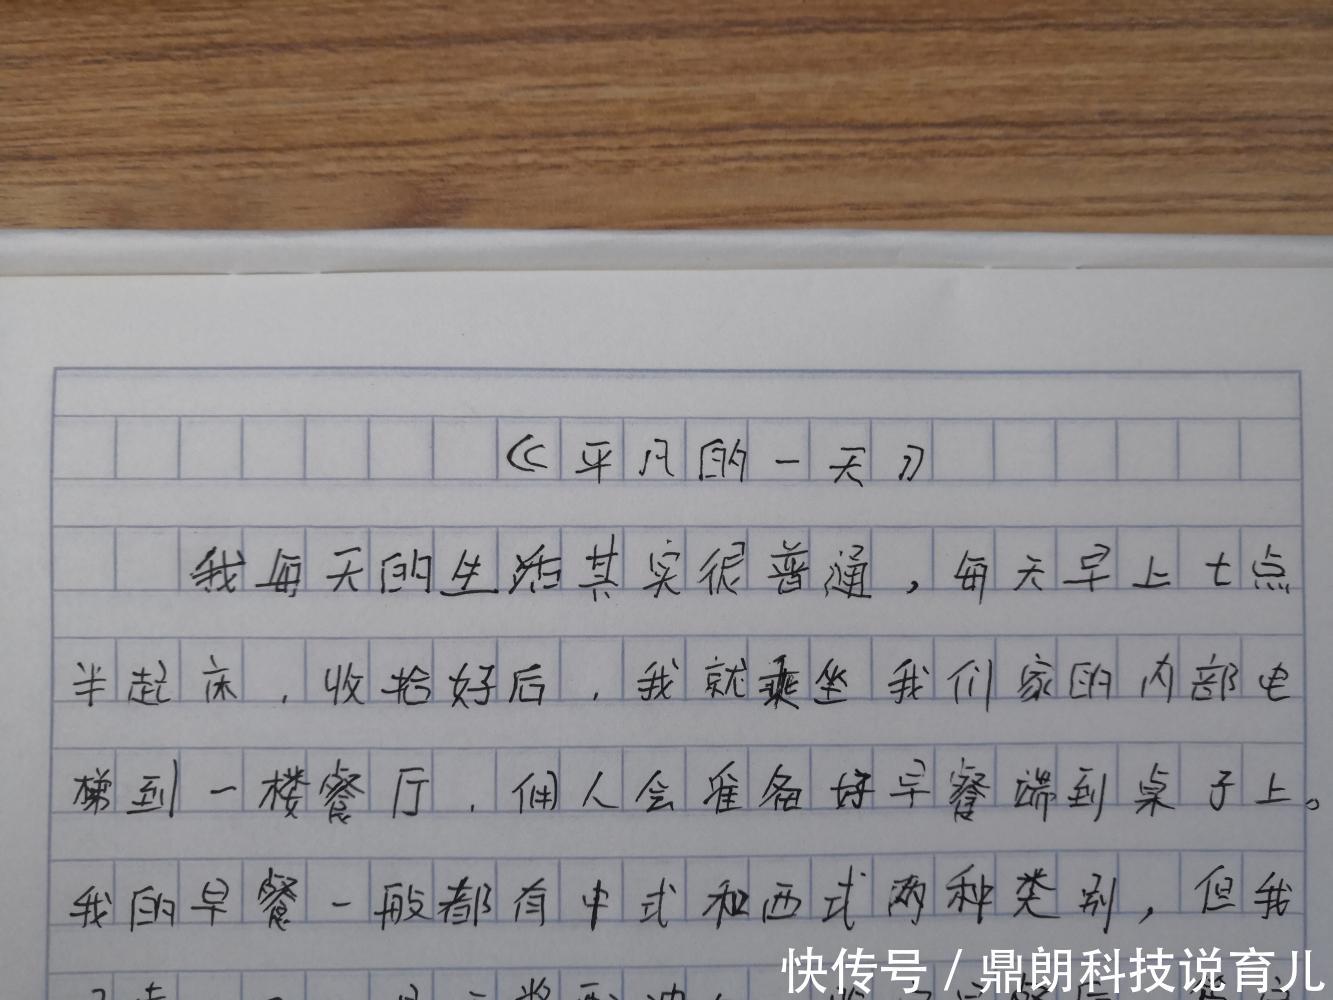 《平凡的一天》
我每天的生活其实很普通，每天早上七点
半起床，收拾好后，我就乘坐我们家的内部电
梯到一楼餐厅，佣人会准备好早餐端到桌子上。
我的早餐一般都有中式和西式两种类别，但我
快传号 / 鼎朗科技说育儿